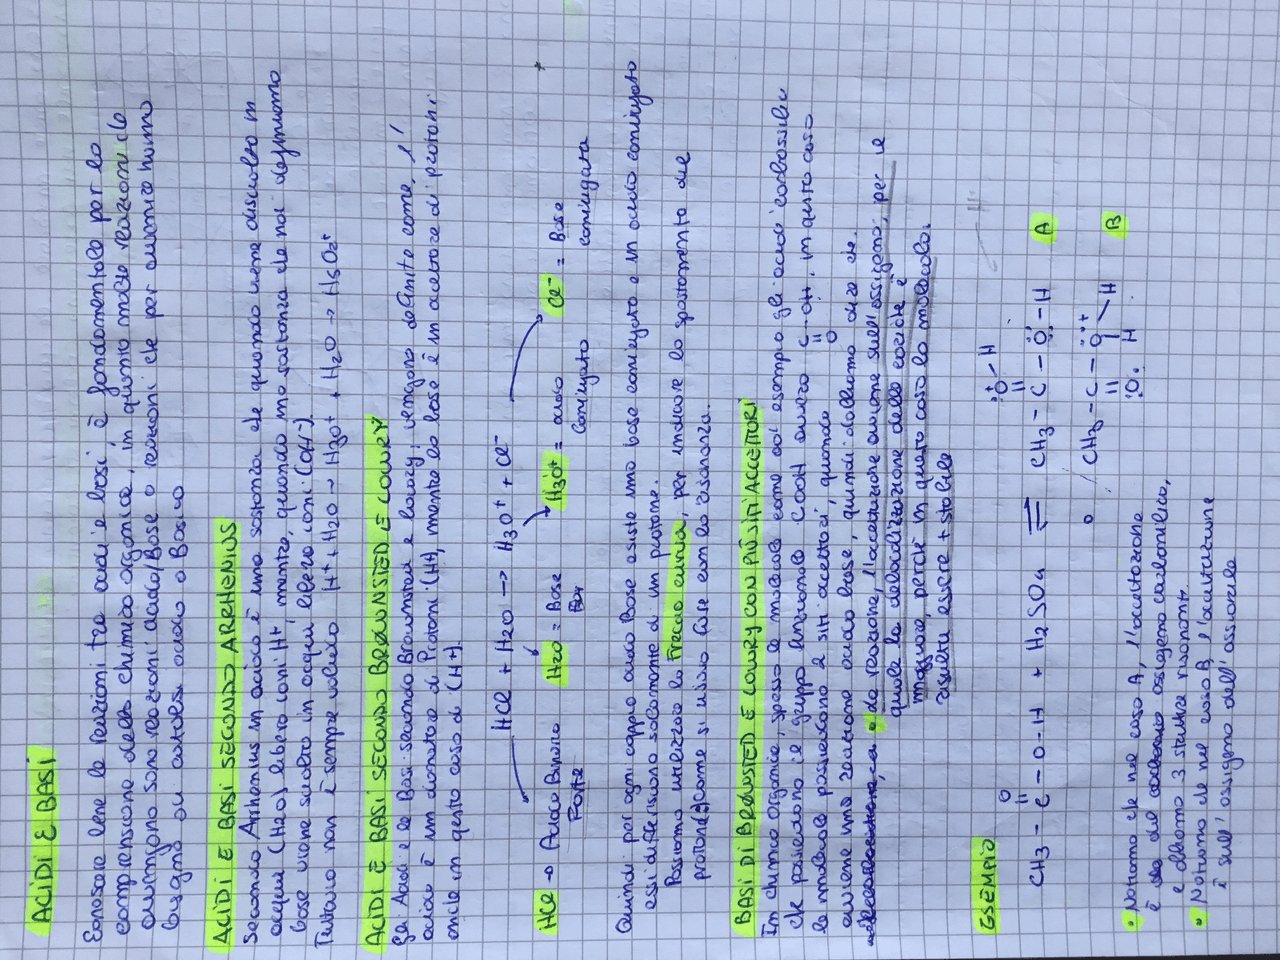 ACIDI E BASI
Conoscere bene le reazioni tra acidi e basi, è fondamentale per la
comprensione della chimica organica, in quanto molte reazioni che
avvengono sono reazioni acido/Base o reazioni che per avvenire hanno
bisogno di catalisi acida o Basica
ACIDI E BASI SECONDO ARRHENIUS
Secondo Arrhenius un acido è una sostanza che quando viene disciolta in
acqua (H2O) libera ioni H+ mentre, quando una sostanza che noi definiamo
base viene sciolta in acqua libera ioni (OH-).
Tuttavia non è sempre valido H+ + H2O → H3O+ + H2O → H5O2+
ACIDI E BASI SECONDO BRØWNSTED E LOWRY
Gli Acidi e le Basi secondo Brownsted e lowry, vengono definite come, l'
acido è un donatore di Protoni (H+), mentre la base è un accettore di protoni
anche in questo caso di (H+).
HCl + H2O → H3O+ + Cl-
HCl → Acido Binario
Forte
H2O = Base
H3O+ = acido
coniugato
Cl- = Base
coniugata
Quindi per ogni coppia acido Base esiste una base coniugata e un acido coniugato
essi differiscono solamente di un protone.
Possiamo utilizzare la Freccia curva, per indicare lo spostamento del
protone, come si usava fare con la risonanza.
BASI DI BRØWNSTED E LOWRY CON PIÙ SITI ACCETTORI
In chimica organica, spesso le molecole come ad esempio gli acidi carbossilici
che possiedono il gruppo funzionale COOH ovvero C-OH, in questo caso
O
la molecola possiedono 2 siti accettori, quando
avviene una reazione acido base, quindi dobbiamo dire che.
la reazione, l'accettazione avviene sull'ossigeno, per il
quale la delocalizzazione della carica è
maggiore, perché in questo caso la molecola.
risulta essere + stabile
ESEMPIO
CH3 - C - O - H + H2SO4 ⇌ CH3 - C - O - H A
O
O+ - H
o CH3 - C - O+ - H B
O H
Notiamo che nel caso A, l'accettazione
è dell'ossigeno carbonilico,
e abbiamo 3 strutture risonanti.
Notiamo che nel caso B, l'accettazione
è sull'ossigeno dell'ossidrile